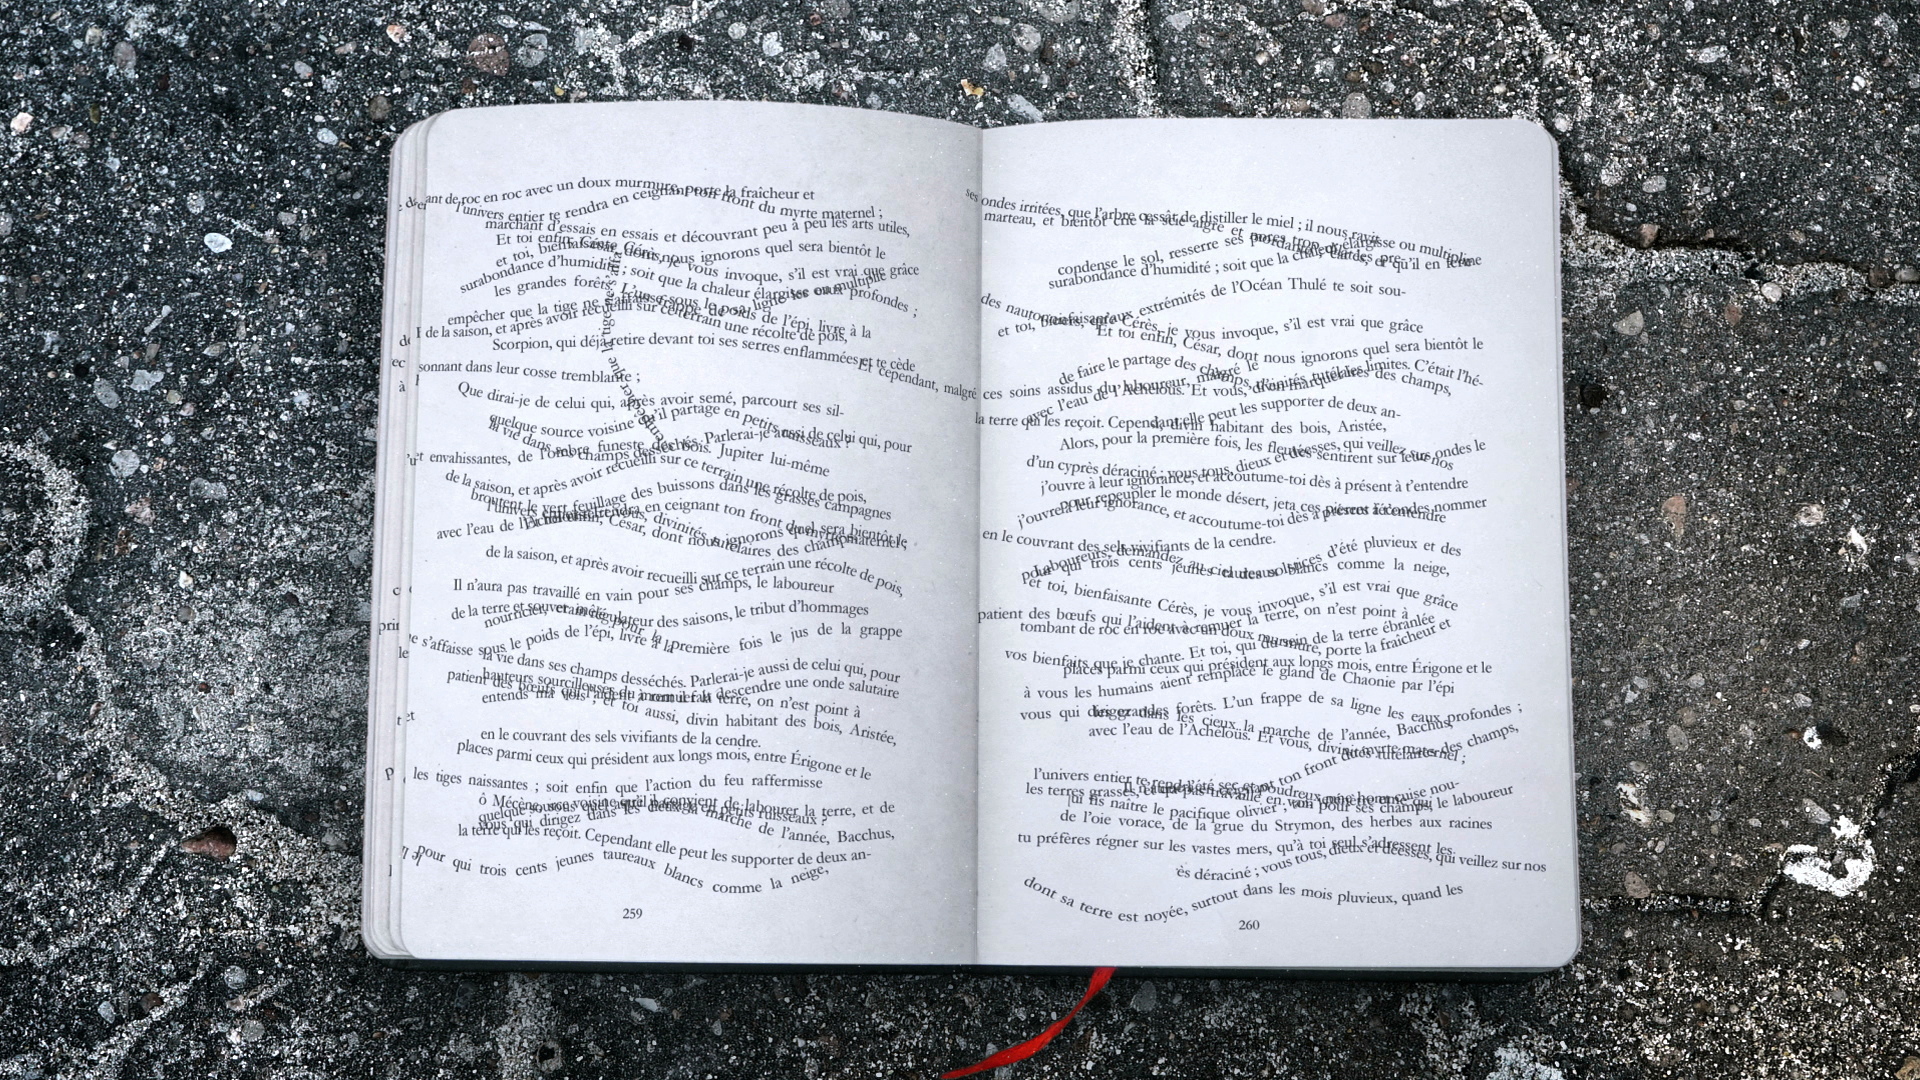 ant de roc en roc avec un doux murmure, porte la fraîcheur et
l'univers entier te rendra en ceignant ton front du myrte maternel ;
marchant d'essais en essais et découvrant peu à peu les arts utiles,
Et toi enfin, César, dont nous ignorons quel sera bientôt le
et toi, bienfaisante Cérès, je vous invoque, s'il est vrai que grâce
surabondance d'humidité ; soit que la chaleur élargisse ou multiplie
les grandes forêts. L'un frappe de sa ligne les eaux profondes ;
empêcher que la tige ne s'affaisse sous le poids de l'épi, livre à la
de la saison, et après avoir recueilli sur ce terrain une récolte de pois,
Scorpion, qui déjà retire devant toi ses serres enflammées et te cède
sonnant dans leur cosse tremblante ;
Que dirai-je de celui qui, après avoir semé, parcourt ses sil-
quelque source voisine qu'il partage en petits ruisseaux ?
la vie dans ses champs desséchés. Parlerai-je aussi de celui qui, pour
envahissantes, de l'ombre funeste des bois. Jupiter lui-même
de la saison, et après avoir recueilli sur ce terrain une récolte de pois,
broutent le vert feuillage des buissons dans les grasses campagnes
l'univers entier te rendra en ceignant ton front du myrte maternel ;
Et toi enfin, César, dont nous ignorons quel sera bientôt le
avec l'eau de l'Achéloüs. Et vous, divinités tutélaires des champs,
de la saison, et après avoir recueilli sur ce terrain une récolte de pois,
Il n'aura pas travaillé en vain pour ses champs, le laboureur
de la terre et souverain régulateur des saisons, le tribut d'hommages
nourricier, et mêlé pour la première fois le jus de la grappe
s'affaisse sous le poids de l'épi, livre à la
la vie dans ses champs desséchés. Parlerai-je aussi de celui qui, pour
hauteurs sourcilleuses du mont il fait descendre une onde salutaire
patient des bœufs qui l'aident à remuer la terre, on n'est point à
entends ma voix ; et toi aussi, divin habitant des bois, Aristée,
en le couvrant des sels vivifiants de la cendre.
places parmi ceux qui président aux longs mois, entre Érigone et le
les tiges naissantes ; soit enfin que l'action du feu raffermisse
ô Mécène, sous quel astre il convient de labourer la terre, et de
quelque source voisine qu'il partage en petits ruisseaux ?
vous qui dirigez dans les cieux la marche de l'année, Bacchus,
la terre qui les reçoit. Cependant elle peut les supporter de deux an-
pour qui trois cents jeunes taureaux blancs comme la neige,
259
ses ondes irritées, que l'arbre cessât de distiller le miel ; il nous ravisse ou multiplie
marteau, et bientôt crie la scie aigre et
condense le sol, resserre ses pores trop élargis
surabondance d'humidité ; soit que la chaleur
extrémités de l'Océan Thulé te soit sou-
et toi, bienfaisante Cérès, je vous invoque, s'il est vrai que grâce
Et toi enfin, César, dont nous ignorons quel sera bientôt le
de faire le partage des champs, d'en marquer les limites. C'était l'hé-
Et cependant, malgré ces soins assidus du laboureur, malgré le
avec l'eau de l'Achéloüs. Et vous, divinités tutélaires des champs,
la terre qui les reçoit. Cependant elle peut les supporter de deux an-
divin habitant des bois, Aristée,
Alors, pour la première fois, les fleuves sentirent sur leurs ondes le
d'un cyprès déraciné ; vous tous, dieux et déesses, qui veillez sur nos
j'ouvre à leur ignorance, et accoutume-toi dès à présent à t'entendre
pour repeupler le monde désert, jeta ces pierres fécondes
j'ouvre à leur ignorance, et accoutume-toi dès à présent à t'entendre nommer
en le couvrant des sels vivifiants de la cendre.
Laboureurs, demandez au ciel des solstices d'été pluvieux et des
pour qui trois cents jeunes taureaux blancs comme la neige,
et toi, bienfaisante Cérès, je vous invoque, s'il est vrai que grâce
patient des bœufs qui l'aident à remuer la terre, on n'est point à
tombant de roc en roc avec un doux murmure, porte la fraîcheur et
vos bienfaits que je chante. Et toi, qui du sein de la terre ébranlée
places parmi ceux qui président aux longs mois, entre Érigone et le
à vous les humains aient remplacé le gland de Chaonie par l'épi
les grandes forêts. L'un frappe de sa ligne les eaux profondes ;
vous qui dirigez dans les cieux la marche de l'année, Bacchus,
avec l'eau de l'Achéloüs. Et vous, divinités tutélaires des champs,
l'univers entier te rendra en ceignant ton front du myrte maternel ;
les terres grasses,
Il n'aura pas travaillé en vain pour ses champs, le laboureur
fis naître le pacifique olivier ;
de l'oie vorace, de la grue du Strymon, des herbes aux racines
tu préfères régner sur les vastes mers, qu'à toi seul s'adressent les
ès déraciné ; vous tous, dieux et déesses, qui veillez sur nos
dont sa terre est noyée, surtout dans les mois pluvieux, quand les
260